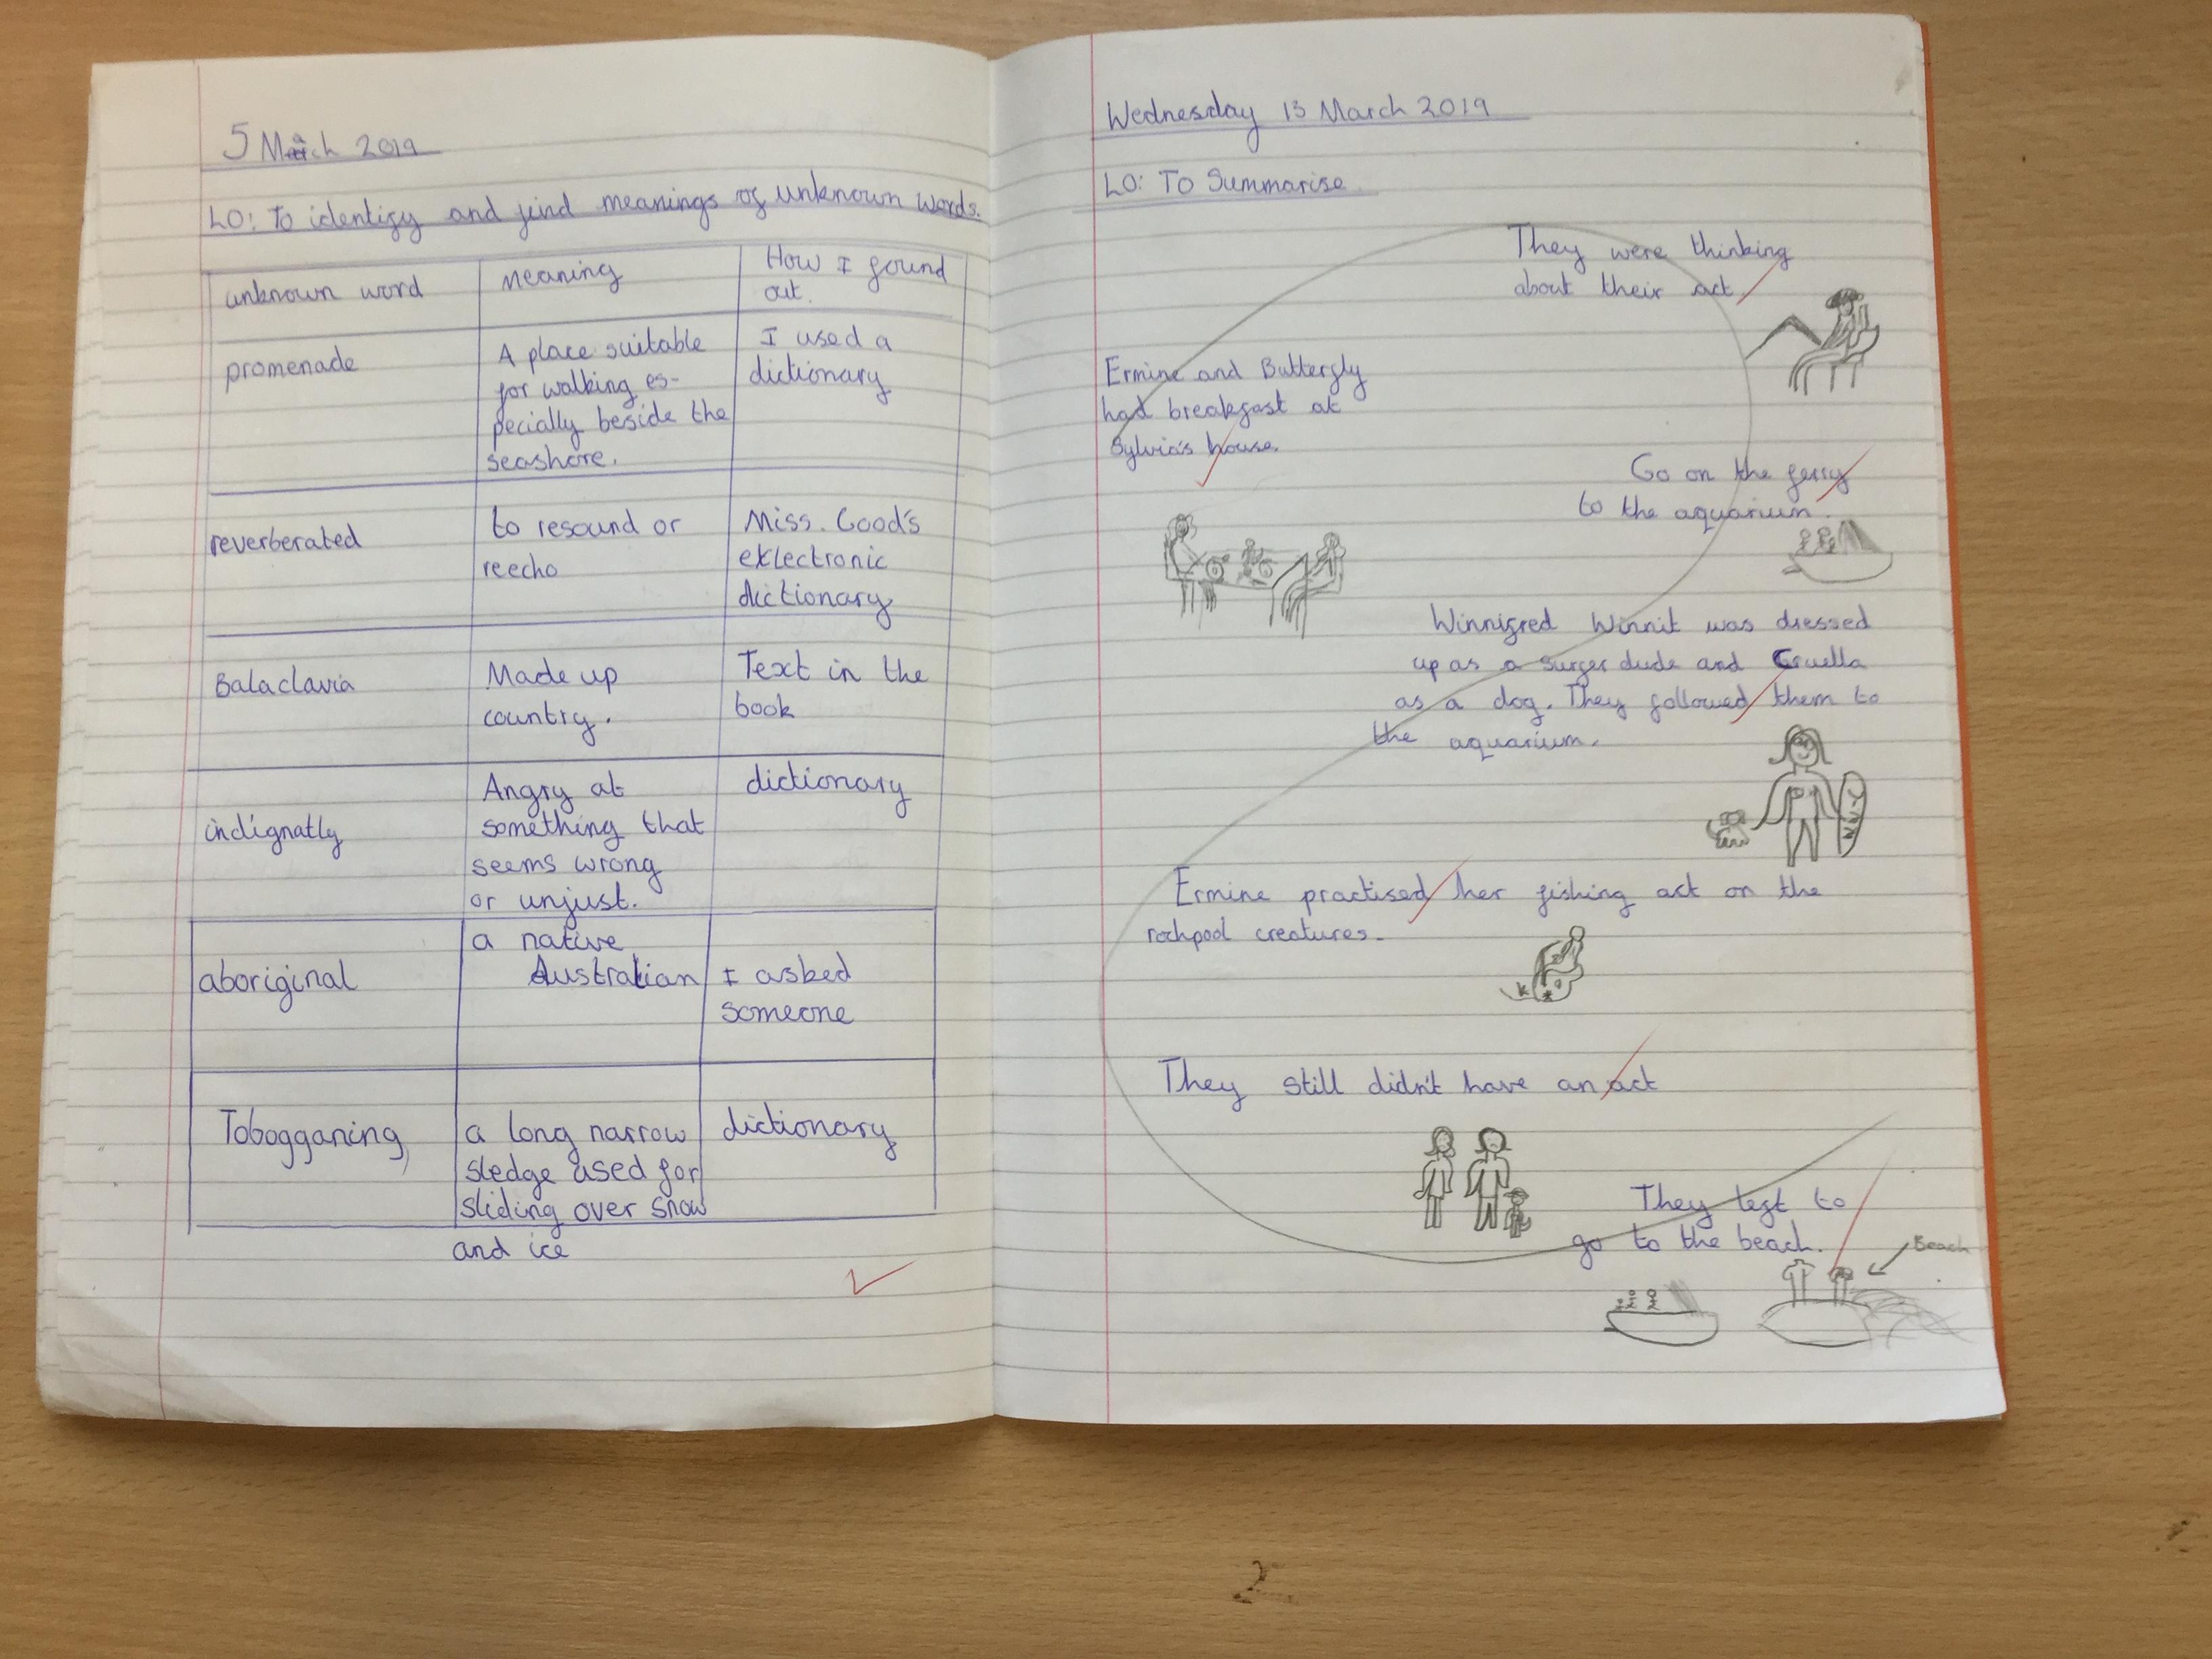 5 March 2019
LO: To identify and find meanings of unknown words.
unknown word
meaning
How I found
out.
promenade
A place suitable
for walking es-
pecially beside the
seashore.
I used a
dictionary
reverberated
to resound or
reecho
Miss. Good's
exlectronic
dictionary
Balaclavia
Made up
country.
Text in the
book
indignatly
Angry at
something that
seems wrong
or unjust.
dictionary
aboriginal
a native
Australian
I asked
someone
Tobogganing
a long narrow
sledge used for
sliding over snow
and ice
dictionary
Wednesday 13 March 2019
LO: To Summarise
They were thinking
about their act
Ermine and Butterfly
had breakfast at
Sylvia's house.
Go on the ferry
to the aquarium.
Winnifred Winnit was dressed
up as a surfer dude and Cruella
as a dog. They followed them to
the aquarium.
Ermine practised her fishing act on the
rockpool creatures.
They still didn't have an act
They left to
go to the beach.
Beach